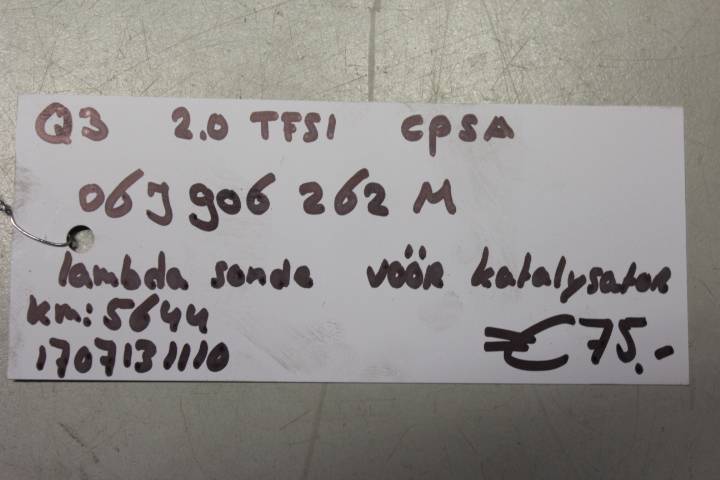 Q3 2.0 TFSI CPSA
06J 906 262 M
lambda sonde vöör katalysator
km: 5644
1707131110
€ 75,-